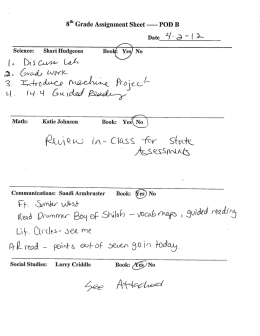 8th Grade Assignment Sheet ---- POD B
Date 4-2-12
Science: Shari Hudgeons Book: Yes No
1. Discuss Lab
2. Grade work
3. Introduce machine Project
4. 14.4 Guided Reading
Math: Katie Johnson Book: Yes No
Review in-class for State
Assessments
Communications: Sandi Armbruster Book: Yes No
Ft. Sumter West
Read Drummer Boy of Shiloh - vocab maps, guided reading
Lit. Circles - see me
AR read - points out of seven go in today
Social Studies: Larry Criddle Book: Yes No
See Attached